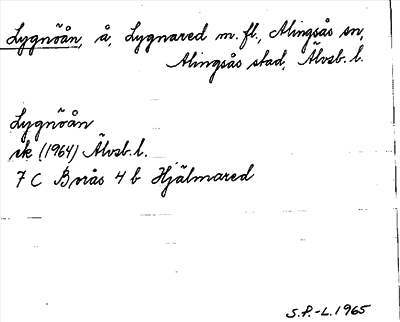 Lygnöån, å, Lygnared m. fl., Alingsås sn,
Alingsås stad, Älvsb. l.
Lygnöån
ek (1964) Älvsb. l.
7 C Borås 4 b Hjälmared
S.P.-L. 1965